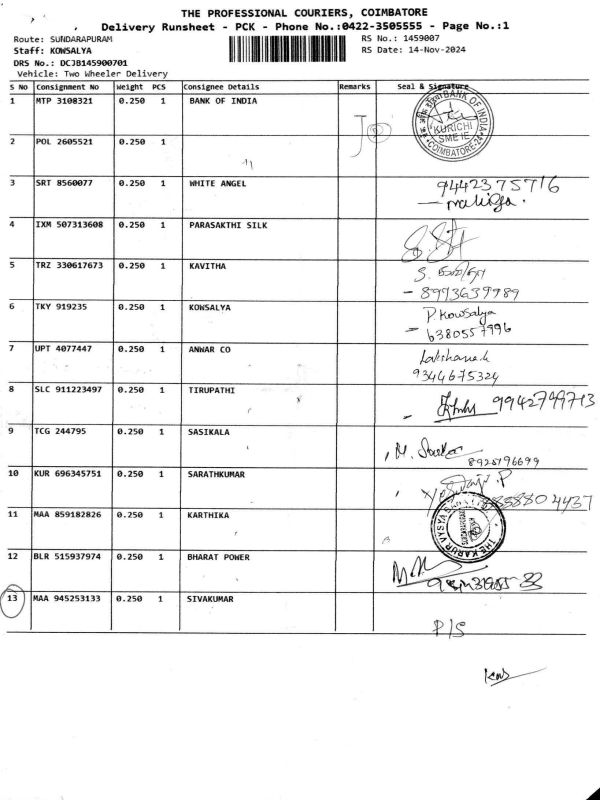 THE PROFESSIONAL COURIERS, COIMBATORE
Delivery Runsheet - PCK - Phone No.:0422-3505555 - Page No.:1
Route: SUNDARAPURAM RS No.: 1459007
Staff: KOWSALYA RS Date: 14-Nov-2024
DRS No.: DCJB145900701
Vehicle: Two Wheeler Delivery
S No Consignment No Weight PCS Consignee Details Remarks Seal & Signature
1 MTP 3108321 0.250 1 BANK OF INDIA
BANK OF INDIA
KURICHI
SME IE
COIMBATORE-24
2 POL 2605521 0.250 1
11
3 SRT 8560077 0.250 1 WHITE ANGEL 9442375716
4 IXM 507313608 0.250 1 PARASAKTHI SILK
5 TRZ 330617673 0.250 1 KAVITHA
8993639989
6 TKY 919235 0.250 1 KOWSALYA P. Kowsalya
6380557996
7 UPT 4077447 0.250 1 ANWAR CO
9344675324
8 SLC 911223497 0.250 1 TIRUPATHI 9942799713
9 TCG 244795 0.250 1 SASIKALA
8925196699
10 KUR 696345751 0.250 1 SARATHKUMAR
11 MAA 859182826 0.250 1 KARTHIKA
THE KARUR VYSYA BANK
12 BLR 515937974 0.250 1 BHARAT POWER
13 MAA 945253133 0.250 1 SIVAKUMAR
P/S